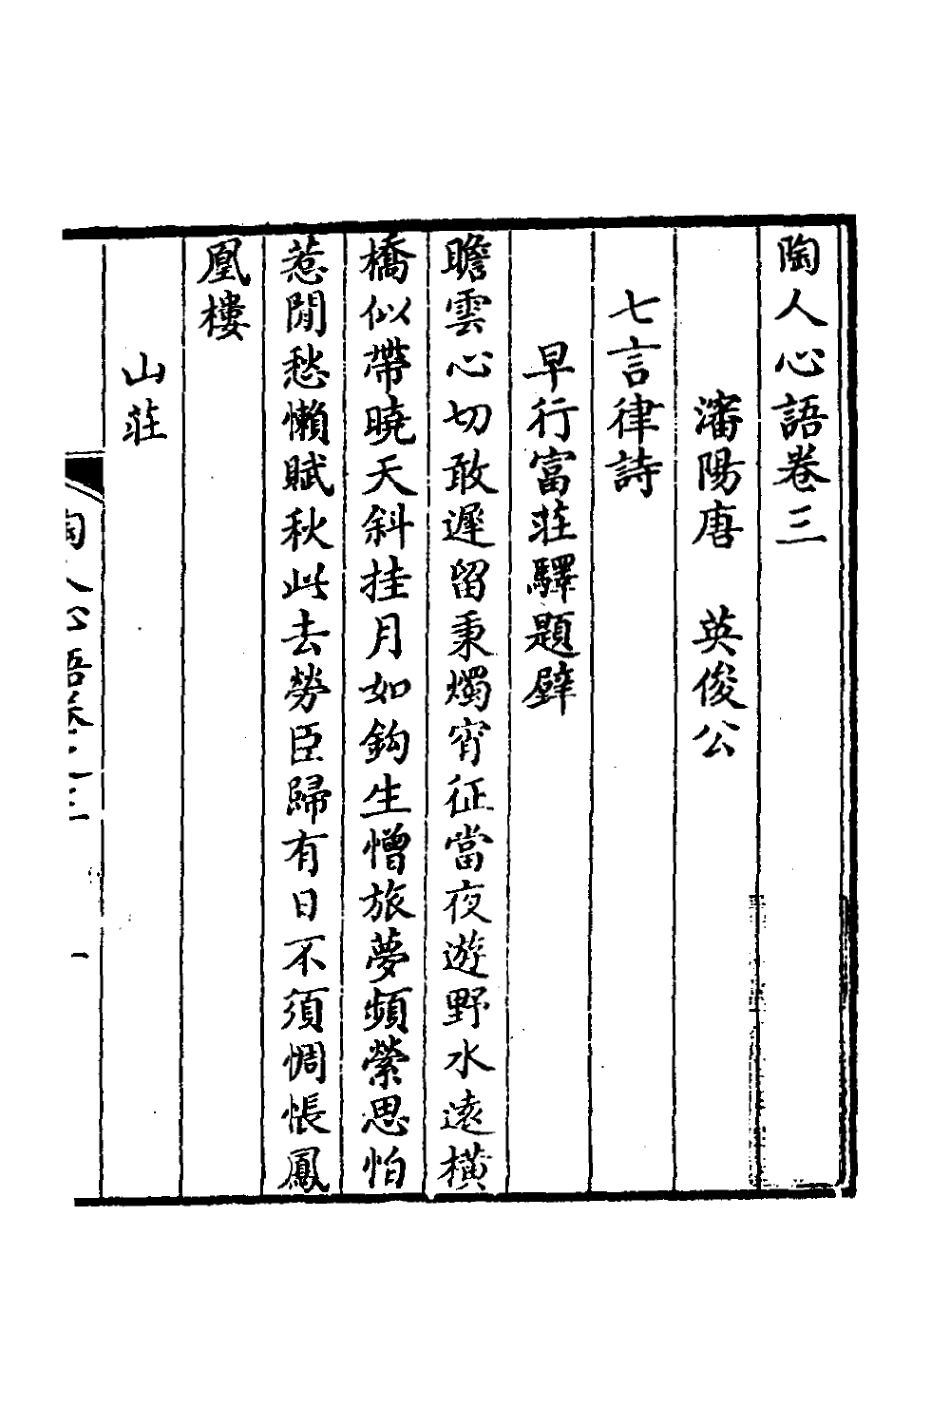 陶人心語卷三
瀋陽唐 英俊公
七言律詩
早行富莊驛題壁
瞻雲心切敢遲留秉燭宵征當夜遊野水遠橫
橋似帶曉天斜挂月如鈎生憎旅夢頻縈思怕
惹閒愁懶賦秋此去勞臣歸有日不須惆悵鳳
凰樓
山莊
陶人心語卷之三
一